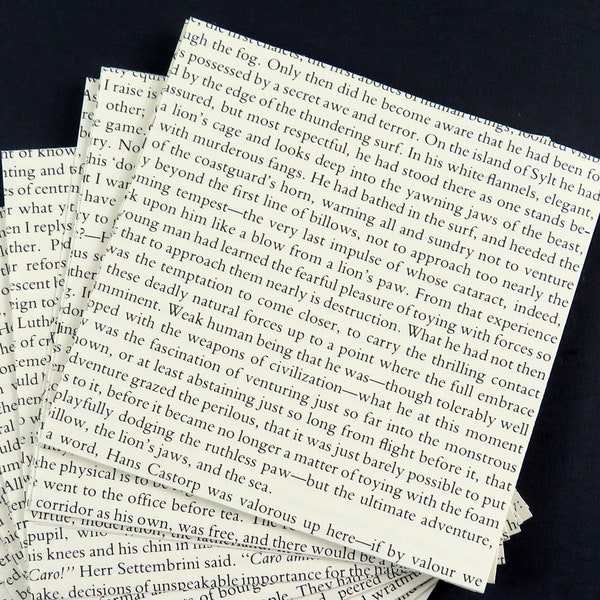 the first chalets, the first abodes of human beings, loomed visi
ugh the fog. Only then did he become aware that he had been fo
s possessed by a secret awe and terror. On the island of Sylt he had
d by the edge of the thundering surf. In his white flannels, elegant,
assured, but most respectful, he had stood there as one stands be-
a lion's cage and looks deep into the yawning jaws of the beast,
with murderous fangs. He had bathed in the surf, and heeded the
of the coastguard's horn, warning all and sundry not to venture
y beyond the first line of billows, not to approach too nearly the
ming tempest—the very last impulse of whose cataract, indeed,
k upon him like a blow from a lion's paw. From that experience
young man had learned the fearful pleasure of toying with forces so
that to approach them nearly is destruction. What he had not then
was the temptation to come closer, to carry the thrilling contact
these deadly natural forces up to a point where the full embrace
imminent. Weak human being that he was—though tolerably well
pped with the weapons of civilization—what he at this moment
w was the fascination of venturing just so far into the monstrous
own, or at least abstaining just so long from flight before it, that
dventure grazed the perilous, that it was just barely possible to put
s to it, before it became no longer a matter of toying with the foam
playfully dodging the ruthless paw—but the ultimate adventure,
illow, the lion's jaws, and the sea.
a word, Hans Castorp was valorous up here—if by valour we
I raise is
other;
game,
y. No
his 'do
t I war
have
y to
?—
us so
nt of know
ting and tr
es of centrm
r what yo
n I reply
ther.
ur refor
oescent h
eign to
Luth
onemen
uld
could
"All
she physical is to be
went to the office before tea.
corridor as his own, was free, and there would be a
virtue, moderation,
pupil, who
his knees and his chin in his
Caro!" Herr Settembrini said. "Caro
hake, decisions of unspeakable importance for the
of bourge
They had
I peered